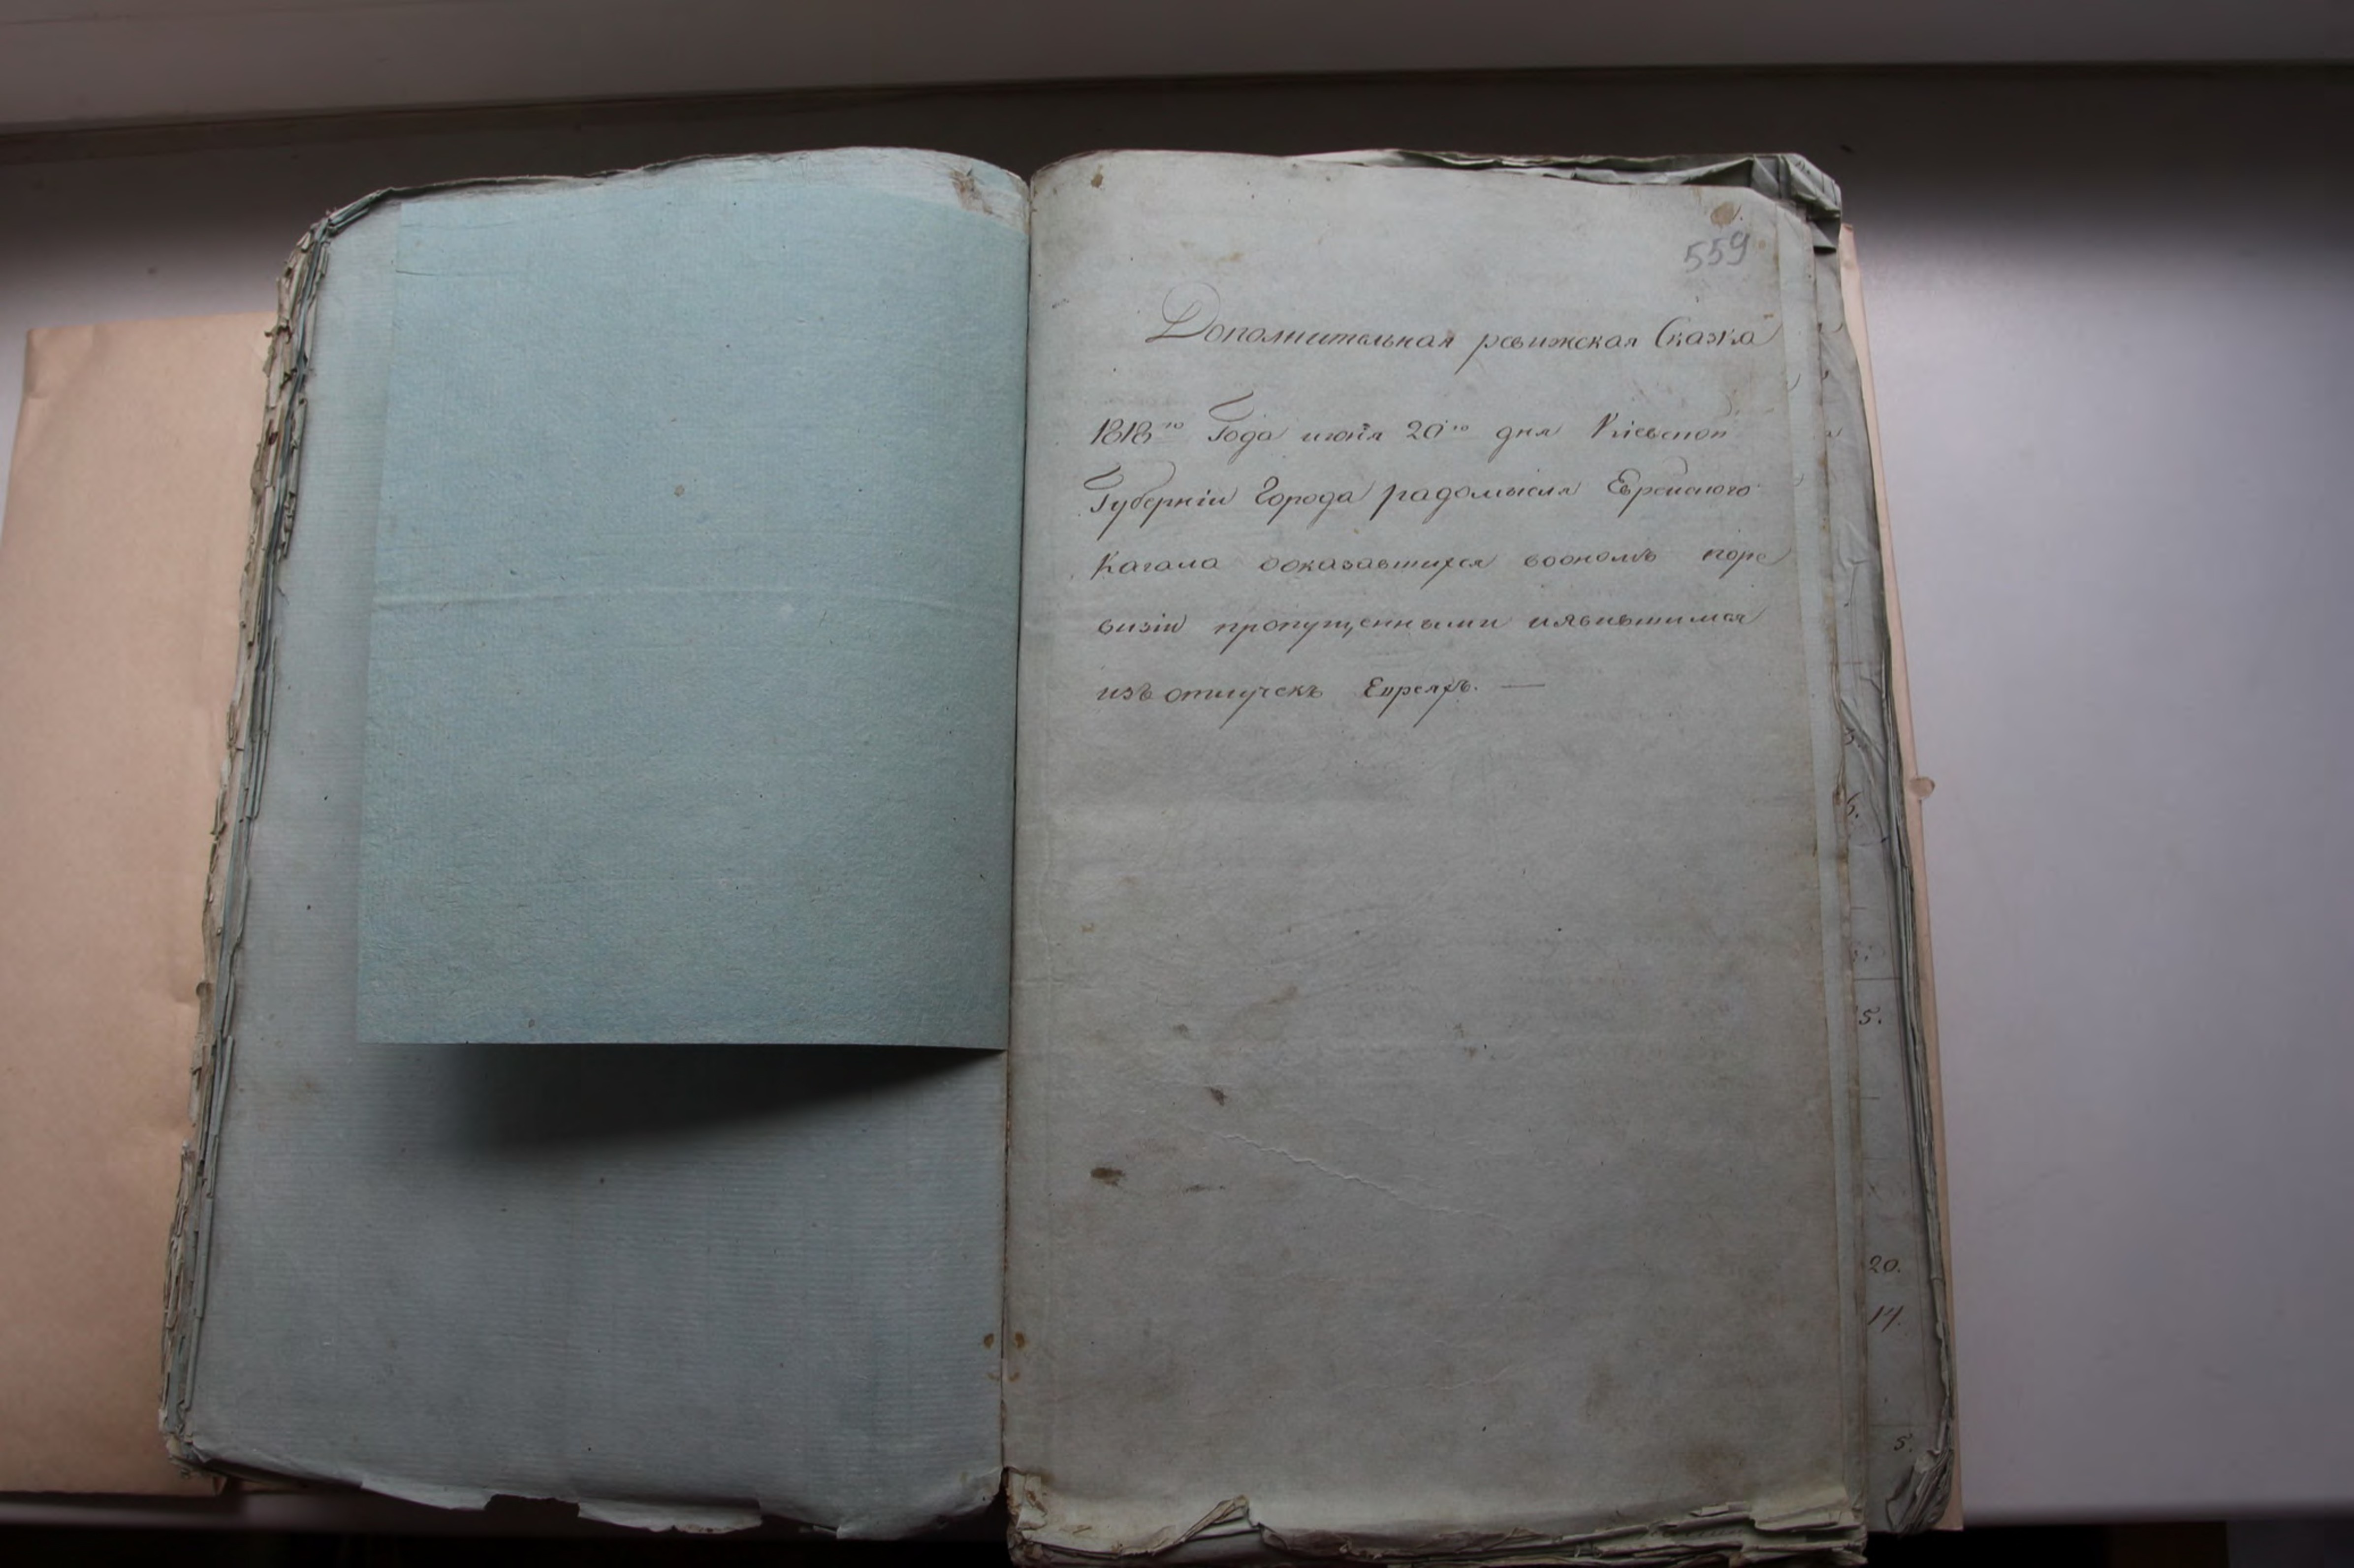 559
Дополнительная ревижская Сказка
1818го Года июня 20го дня Кіевской
Губерніи Города радомысля Еврейского
Кагала ооказавшихся воономъ поре
визіи пропущенными иявившимися
изъ отлучекъ Евреяхъ. —
5.
20.
14.
5.